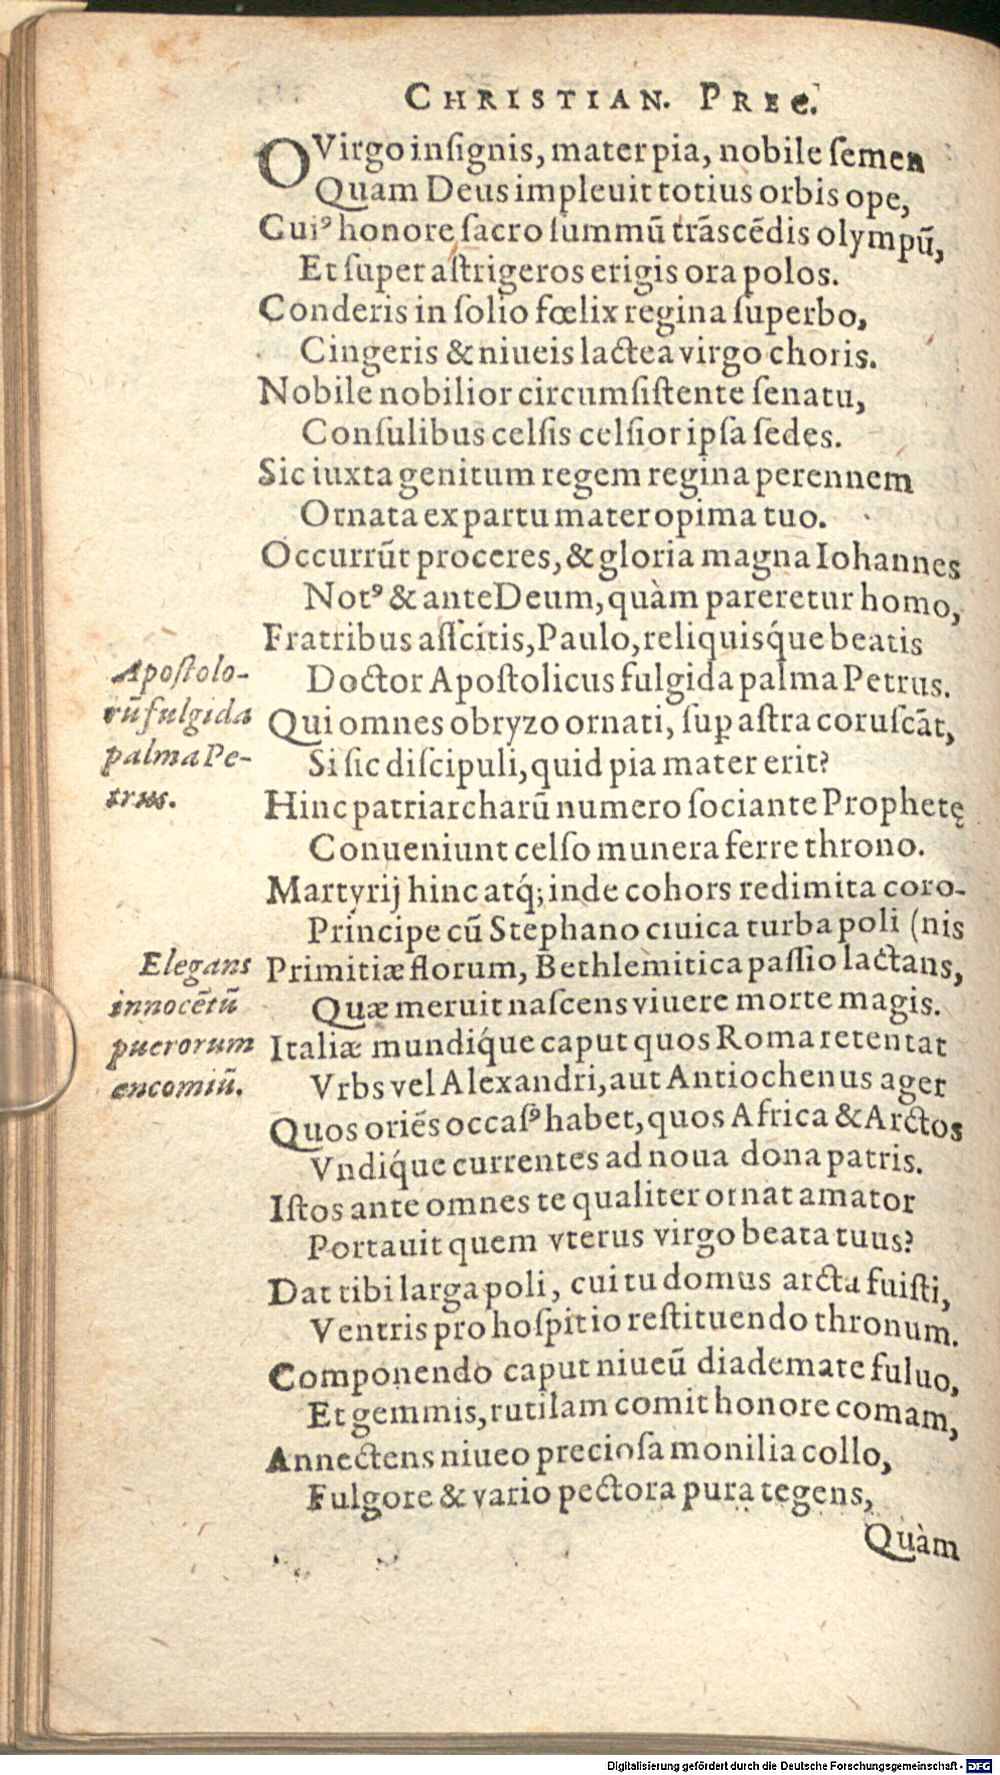 CHRISTIAN. PREC.
O Virgo inſignis, mater pia, nobile ſemen
Quam Deus impleuit totius orbis ope,
Cuiꝰ honore ſacro ſummũ trãscẽdis olympũ,
Et ſuper aſtrigeros erigis ora polos.
Conderis in ſolio fœlix regina ſuperbo,
Cingeris & niueis lactea virgo choris.
Nobile nobilior circumſiſtente ſenatu,
Conſulibus celſis celſior ipſa ſedes.
Sic iuxta genitum regem regina perennem
Ornata ex partu mater opima tuo.
Occurrũt proceres, & gloria magna Iohannes
Notꝰ & ante Deum, quàm pareretur homo,
Fratribus aſſcitis, Paulo, reliquisq́ue beatis
Apoſtolo-
Doctor Apoſtolicus fulgida palma Petrus.
rũ fulgida
Qui omnes obryzo ornati, ſuꝑ aſtra coruſcãt,
palma Pe-
Si ſic diſcipuli, quid pia mater erit?
trus.
Hinc patriarcharũ numero ſociante Prophetę
Conueniunt celſo munera ferre throno.
Martyrij hinc atq́; inde cohors redimita coro-
Principe cũ Stephano ciuica turba poli (nis
Elegans
Primitiæ florum, Bethlemitica paſſio lactans,
innocẽtũ
Quæ meruit naſcens viuere morte magis.
puerorum
Italiæ mundiq́ue caput quos Roma retentat
encomiũ.
Vrbs vel Alexandri, aut Antiochenus ager
Quos oriẽs occaſꝰ habet, quos Africa & Arctos
Vndiq́ue currentes ad noua dona patris.
Iſtos ante omnes te qualiter ornat amator
Portauit quem vterus virgo beata tuus?
Dat tibi larga poli, cui tu domus arcta fuiſti,
Ventris pro hoſpitio reſtituendo thronum.
Componendo caput niueũ diademate fuluo,
Et gemmis, rutilam comit honore comam,
Annectens niueo precioſa monilia collo,
Fulgore & vario pectora pura tegens,
Quàm
Digitalisierung gefördert durch die Deutsche Forschungsgemeinschaft - DFG